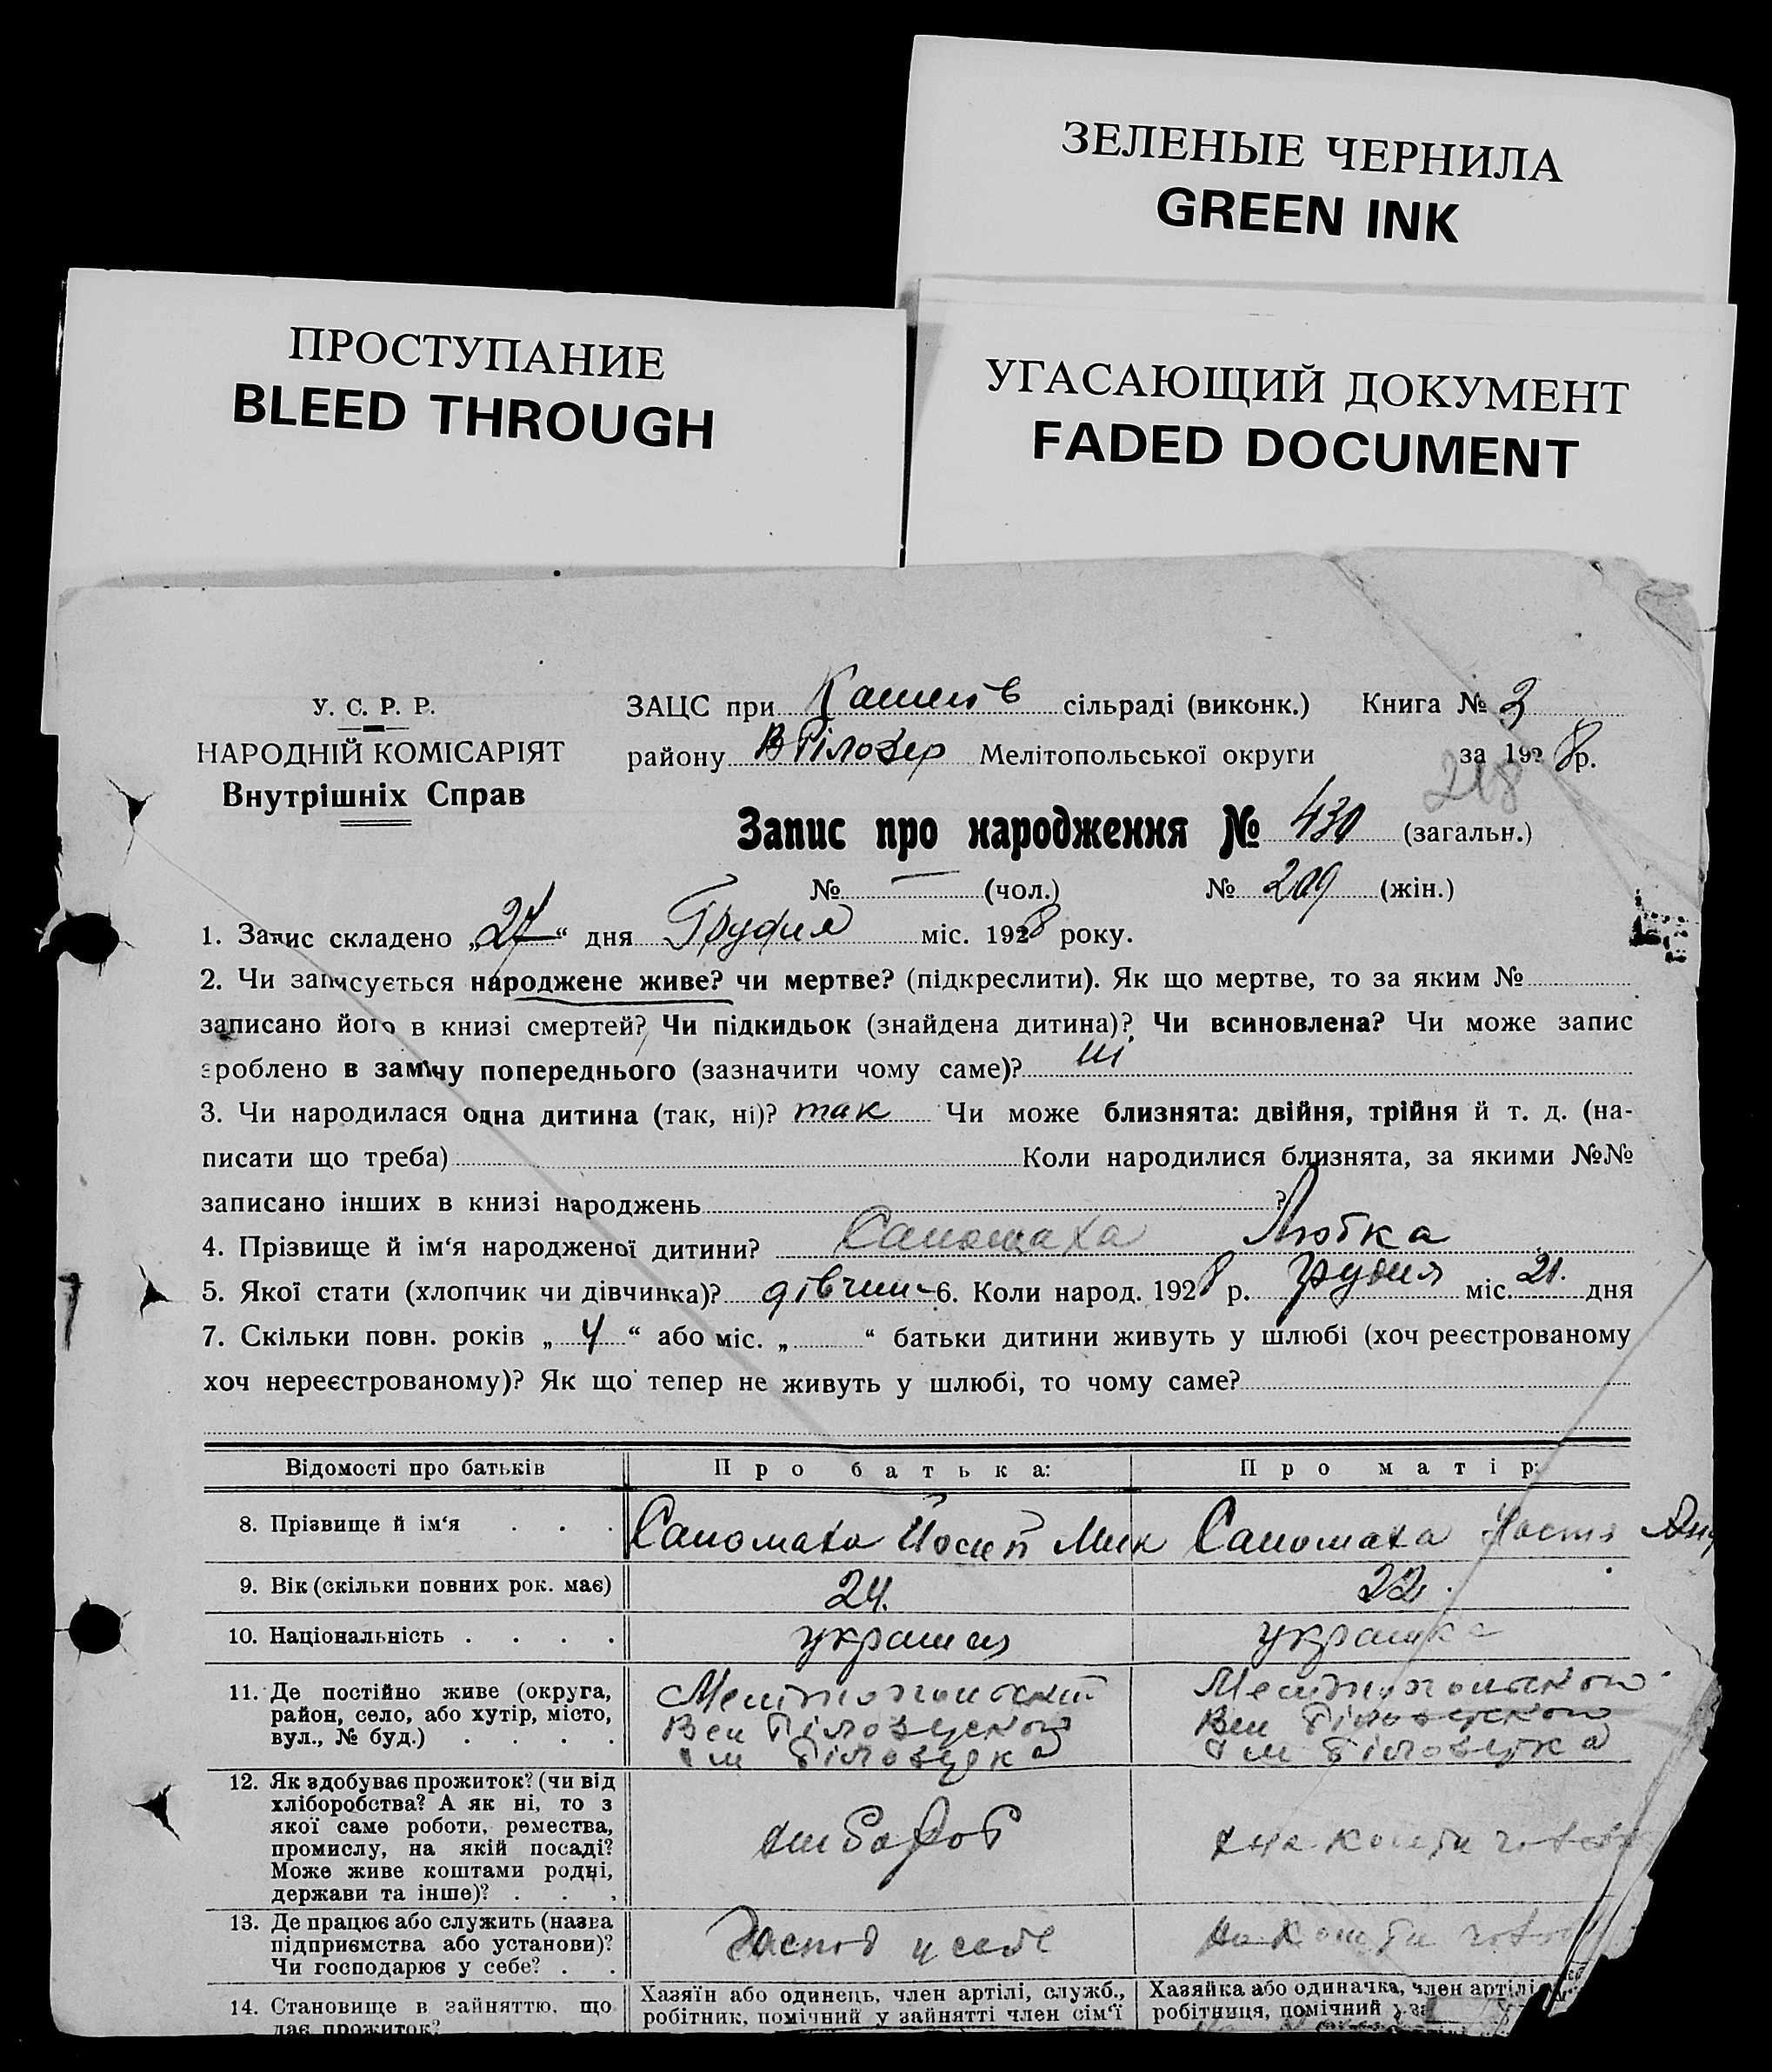 ЗЕЛЕНЫЕ ЧЕРНИЛА
GREEN INK
ПРОСТУПАНИЕ
BLEED THROUGH
УГАСАЮЩИЙ ДОКУМЕНТ
FADED DOCUMENT
У. С. Р. Р.
НАРОДНІЙ КОМІСАРІЯТ
Внутрішніх Справ
ЗАЦС при сільраді (виконк.) Книга № 3
району Мелітопольської округи за 1928 р.
218
Запис про народження № 430 (загальн.)
№ — (чол.) № 209 (жін.)
1. Запис складено „27“ дня Грудня міс. 1928 року.
2. Чи записується народжене живе? чи мертве? (підкреслити). Як що мертве, то за яким №
записано його в книзі смертей? Чи підкидьок (знайдена дитина)? Чи всиновлена? Чи може запис
зроблено в заміну попереднього (зазначити чому саме)? ні
3. Чи народилася одна дитина (так, ні)? так Чи може близнята: двійня, трійня й т. д. (на-
писати що треба) Коли народилися близнята, за якими №№
записано інших в книзі народжень ?
4. Прізвище й ім‘я народженої дитини? Сапомаха Любка
5. Якої стати (хлопчик чи дівчинка)? дівчин 6. Коли народ. 1928 р. грудня міс. 21. дня
7. Скільки повн. років „ 4 “ або міс. „ “ батьки дитини живуть у шлюбі (хоч реєстрованому
хоч нереєстрованому)? Як що тепер не живуть у шлюбі, то чому саме?
Відомості про батьків Про батька: Про матір:
8. Прізвище й ім‘я . . . Сапомаха Йосип Мик Сапомаха Настя
9. Вік (скільки повних рок. має) 24. 22.
10. Національність . . . . українец українка
11. Де постійно живе (округа,
район, село, або хутір, місто,
вул., № буд.) . . . .
12. Як здобуває прожиток? (чи від
хліборобства? А як ні, то з
якої саме роботи, ремества,
промислу, на якій посаді?
Може живе коштами родні,
держави та інше)? . . .
хлібороб на кошти
13. Де працює або служить (назва
підприємства або установи)?
Чи господарює у себе? . .
Господ у себе на кошти
14. Становище в зайняттю, що
дає прожиток?
Хазяїн або одинець, член артілі, служб.,
робітник, помічний у зайнятті член сім‘ї
Хазяйка або одиначка, член артілі
робітниця, помічний у за